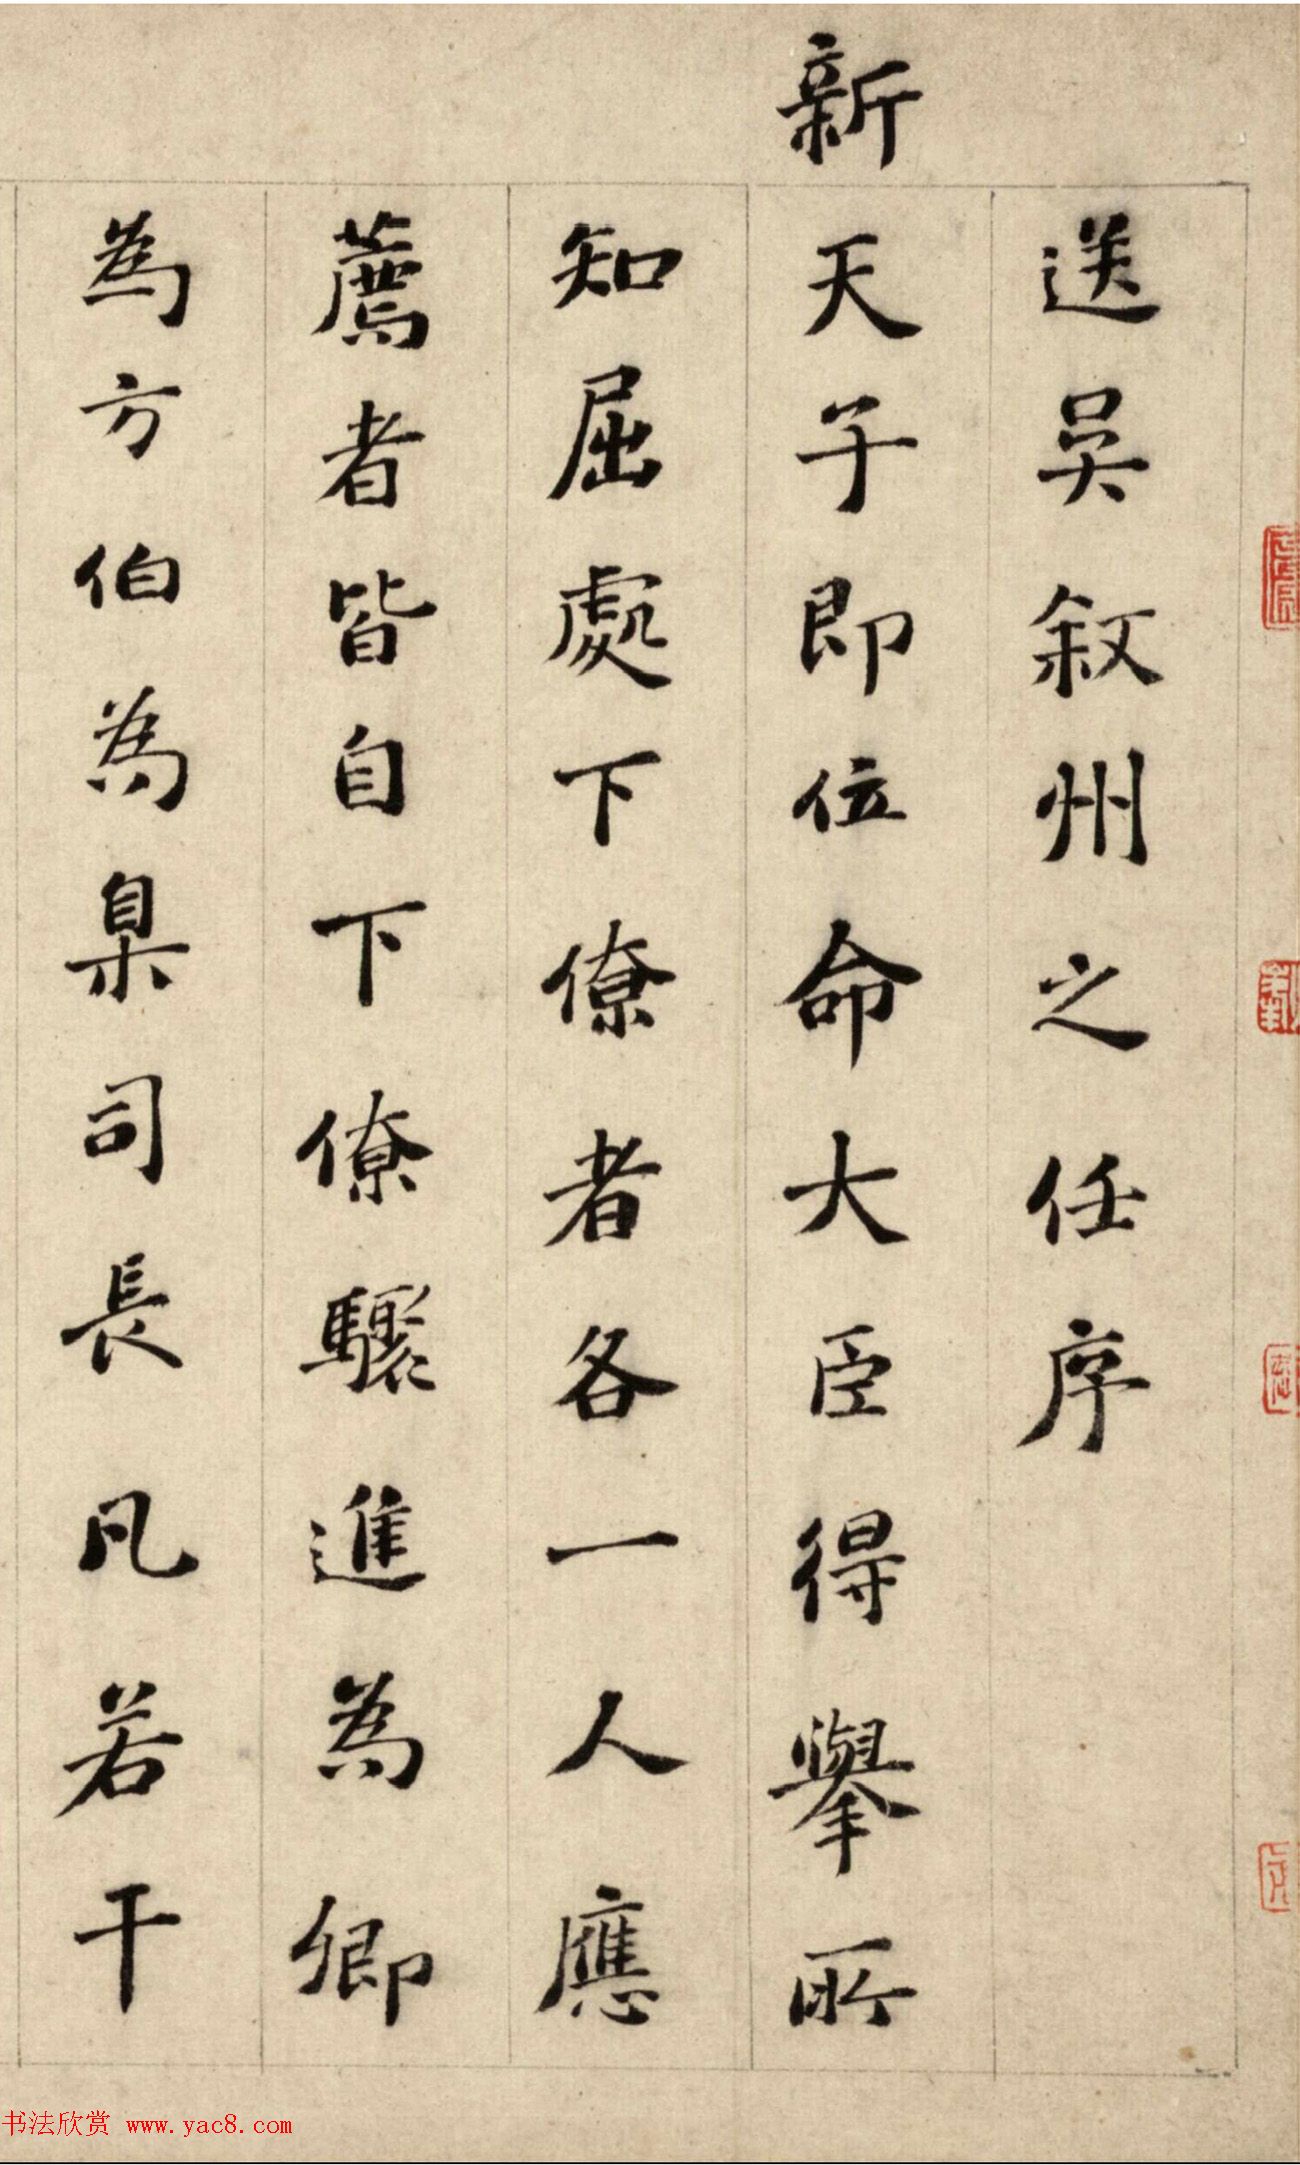 送吴敘州之任序
新天子即位命大臣得舉所
知屈處下僚者各一人應
薦者皆自下僚驟進為卿
為方伯為臬司長凡若干
书法欣赏 www.yac8.com